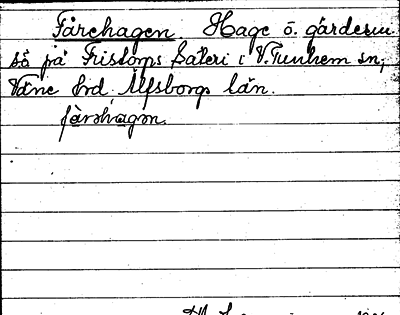 Fårehagen. Hage o. gärdesm.
så på Fristorps Säteri i V. Tunhem sn,
Väne hrd. Älfsborgs län.
fårəhagən.